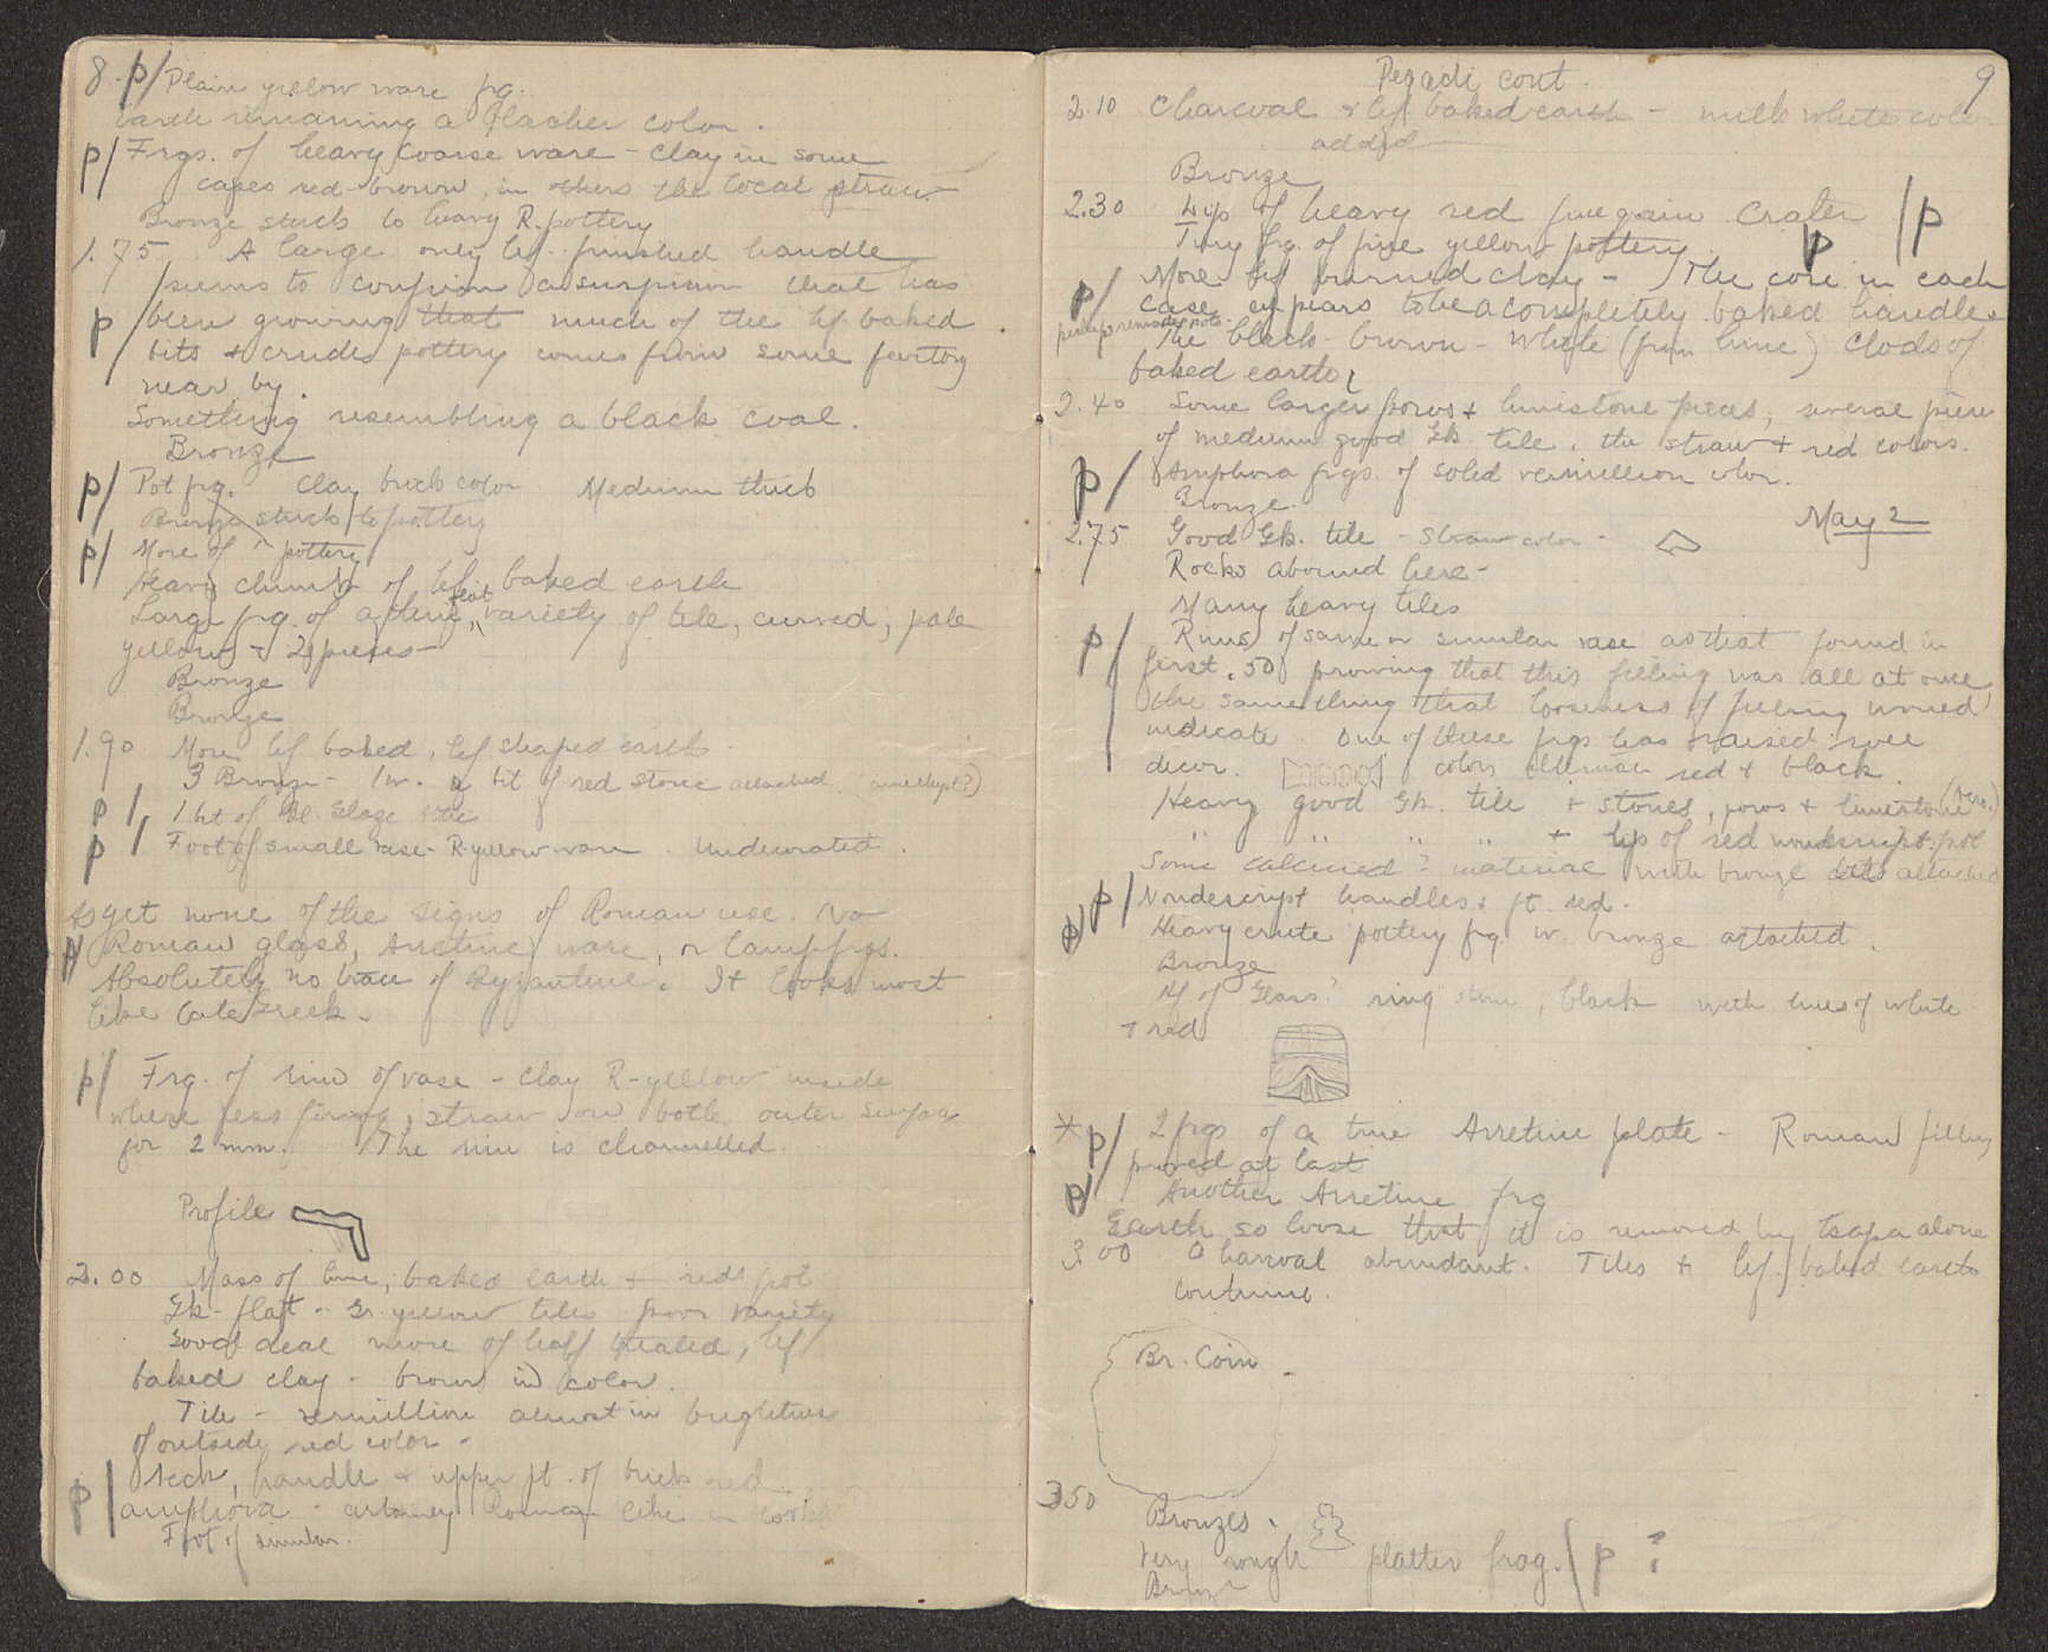 8. p/ Plain yellow ware frg.
earth remaining a blacker color.
p/ Frgs. of heavy coarse ware - clay in some
cases red-brown, in others the local straw
Bronze stuck to heavy R. pottery
1.75 A large only hf. finished handle
seems to confirm a suspicion that has
p/ been growing that much of the hf. baked
bits & crude pottery comes from some factory
near by.
Something resembling a black coal.
Bronze
p/ Pot frg. Clay brick color Medium thick
Bronze stuck to pottery
p/ More of pottery
Heavy chunks of hf. baked earth
Large frg. of a thin, flat variety of tile, curved, pale
yellow - 2 pieces -
Bronze
Bronze
1.90 More hf baked, hf shaped earth.
3 Bronze - 1 w. a bit of red stone attached. (amethyst?)
p/ 1 bit of Bl. Glaze
p/ Foot of small vase - R-yellow ware. Undecorated.
As yet none of the signs of Roman use. No
Roman glass, Arretine ware, or lamp frgs.
Absolutely no trace of Byzantine. It looks most
like late Greek.
p/ Frg. of rim of vase - clay R-yellow inside
where less firing, straw on both outer surfaces
for 2 mm. The rim is channelled.
Profile
2.00 Mass of lime, baked earth & red pot
Gk - flat - Gr. yellow tiles poor variety
Good deal more of half heated, hf
baked clay - brown in color.
Tile - vermillion almost in brightness
of outside red color -
Neck, handle & upper pt. of brick red
p/ amphora - certainly Roman like in looks
Foot of similar.
Pegadi cont. 9
2.10 Charcoal & hf. baked earth - milk white color
added
Bronze
2.30 Lip of heavy red fine grain crater /p
Tiny frg. of fine yellow pottery. p
p/ More hf burned clay - The core in each
case appears to be a completely baked handle.
The black - brown - white (from lime) clods of
baked earth
2.40 Some larger poros & limestone pieces, several pieces
of medium good Gk. tile, the straw & red colors.
p/ Amphora frgs. of solid vermillion color.
Bronze.
May 2
2.75 Good Gk. tile - straw color -
Rocks abound here -
Many heavy tiles
p/ Rims of same or similar vase as that found in
first .50 proving that this filling was all at once
the same thing that looseness of filling would
indicate. One of these frgs has raised
decor. colors alternate red & black.
Heavy good Gk. tile & stones, poros & limestone
" " " " & lip of red nondescript pot
Some calcined? material with bronze bits attached
p/ Nondescript handles & ft. red.
p/ Heavy crude pottery frg. w. bronze attached.
Bronze
Hf of Glass? ring stone, black with lines of white
& red
* p/ 2 frgs of a true Arretine plate - Roman filling
proved at last
p/ Another Arretine frg
Earth so loose that it is removed by tsapa alone
3.00 Charcoal abundant. Tiles & hf. baked earth
continue.
Br. Coin -
3.50
Bronzes.
Very rough platter frag. / p ?
Bronze